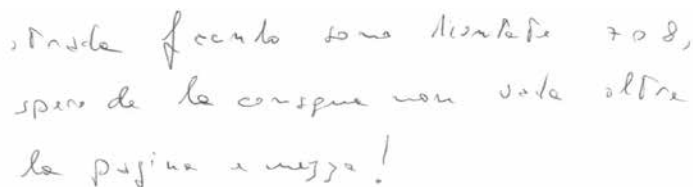 strada facendo sono diventate 7 o 8,
spero che la consegna non vada oltre
la pagina e mezza!